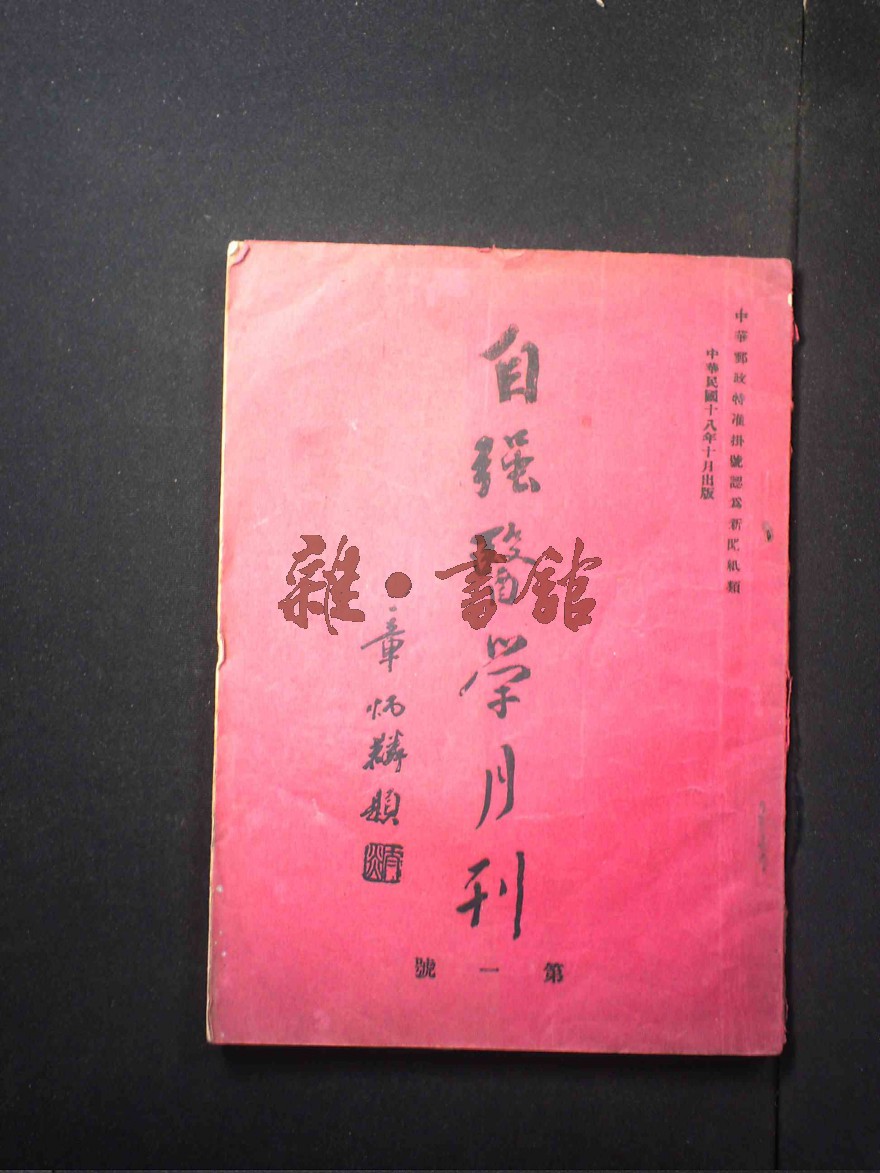 中華郵政特准掛號認爲新聞紙類
中華民國十八年十月出版
自強醫學月刊
章炳麟題
第一號
雜·書館